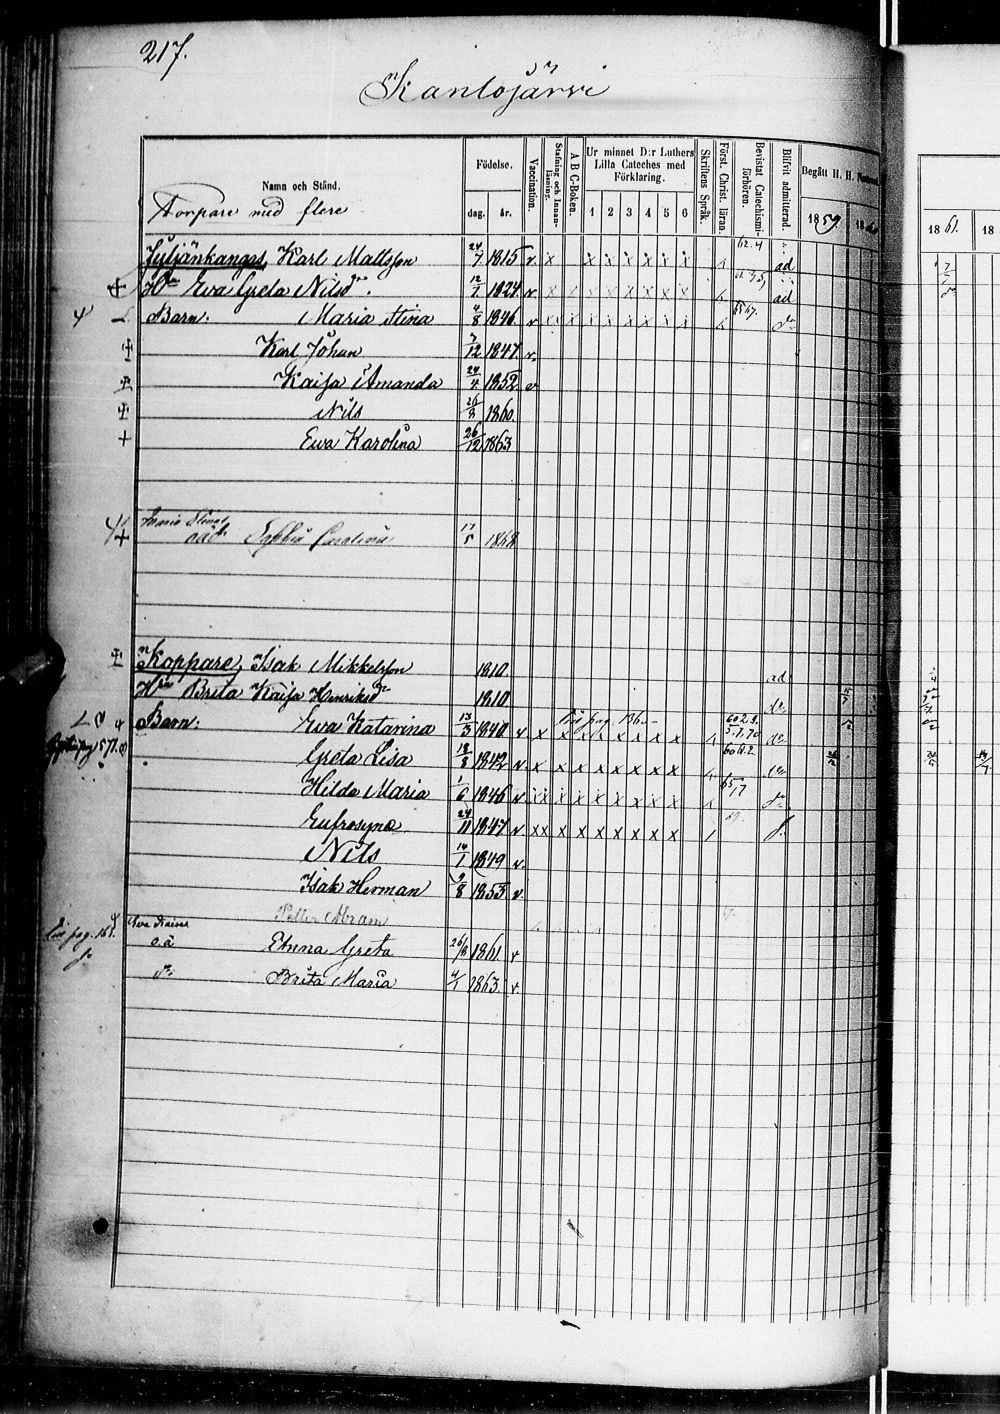 217.
Kantojärvi
Namn och Stånd.
Födelse.
dag.
år.
Vaccination.
Stafning och Innanläsning.
A B C-Boken.
Ur minnet D:r Luthers Lilla Cateches med Förklaring.
1 2 3 4 5 6
Skriftens Språk.
Först. Christ. läran.
Bevistat Catechismiförhören.
Blifvit admitterad.
Begått H. H.
1859.
18
1861.
18
Torpare med flere
Juljänkangas, Karl Mattsson 24/7 1815 v. x x x x x x x ad
H:u Eva Greta Nilsd:r. 12/7 1824 v x x x x x x x x ad
Barn: Maria Stina 4/8 1846. v x x x x x x x x d:o
Karl Johan 7/12 1847. v.
Kaisa Amanda 24/4 1852 v
Nils 26/8 1860.
Ewa Karolina 26/12 1863
Maria Stinas
oäd. Sophia Carolina 17/5 1868
Koppare, Isak Mikkelsson 1810. ad
H:u Brita Kaisa Henriksd:r 1810 d:o
Barn: Eva Katarina 13/3 1840 v x x x x x x x x d:o
Greta Lisa 18/8 1842 v x x x x x x x x d:o
Hilda Maria 1/6 1846 v x x x x x x x x d:o
Eufrosyne 24/11 1847 v. x x x x x x x x x
Nils 14/1 1849 v.
Isak Herman 9/8 1853 v.
Petter Abram
Eva Kaisas
o.ä Anna Greta 26/8 1861. v
d:o Brita Maria 4/1 1863. v.